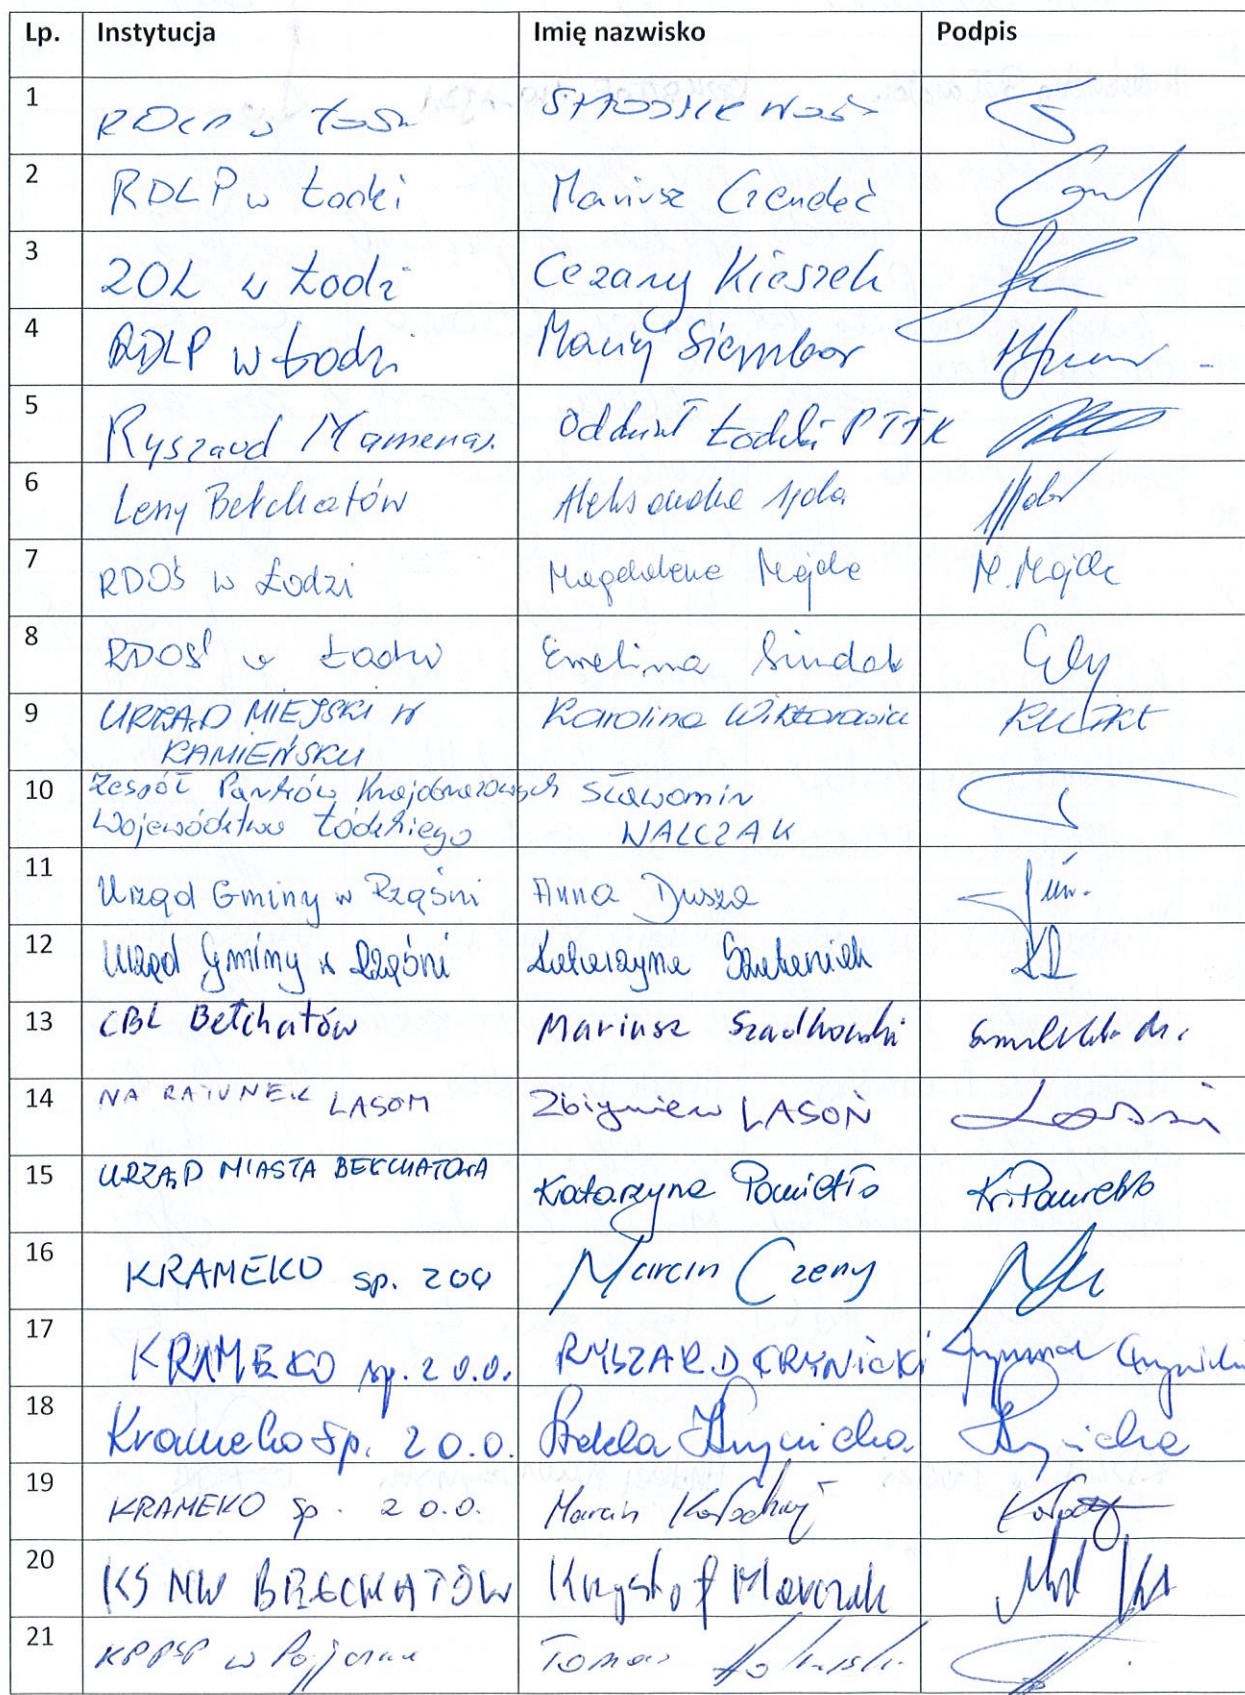 Lp. Instytucja Imię nazwisko Podpis
1 RDLP w
2 RDLP w Łodzi Mariusz
3 ZOL w Łodzi Cezary Kieszek
4 RDLP w Łodzi Maciej Siembor
5 Ryszard Mamenas. Oddział Łódzki PTTK
6 Lasy Bełchatów Aleksandra
7 RDOŚ w Łodzi Magdalena Majda M. Majda
8 RDOŚ w Łodzi Ewelina Sindak
9 URZĄD MIEJSKI W Karolina Wiktorowicz
KAMIEŃSKU
10 Zespół Parków Krajobrazowych Sławomir
Województwa Łódzkiego WALCZAK
11 Urząd Gminy w Rząśni Anna Dusza
12 Urząd Gminy w Rząśni Katarzyna
13 CBL Bełchatów Mariusz Szadkowski
14 NA RATUNEK LASOM Zbigniew LASOŃ
15 URZĄD MIASTA BEŁCHATOWA Katarzyna
16 KRAMEKO sp. zoo Marcin Czerny
17 KRAMEKO sp. z o.o. RYSZARD KRYNICKI
18 Krameko Sp. z o.o. Krynicka Krynicka
19 KRAMEKO sp. z o.o. Marcin
20 BEŁCHATÓW Krzysztof Marczak
21 w Tomasz